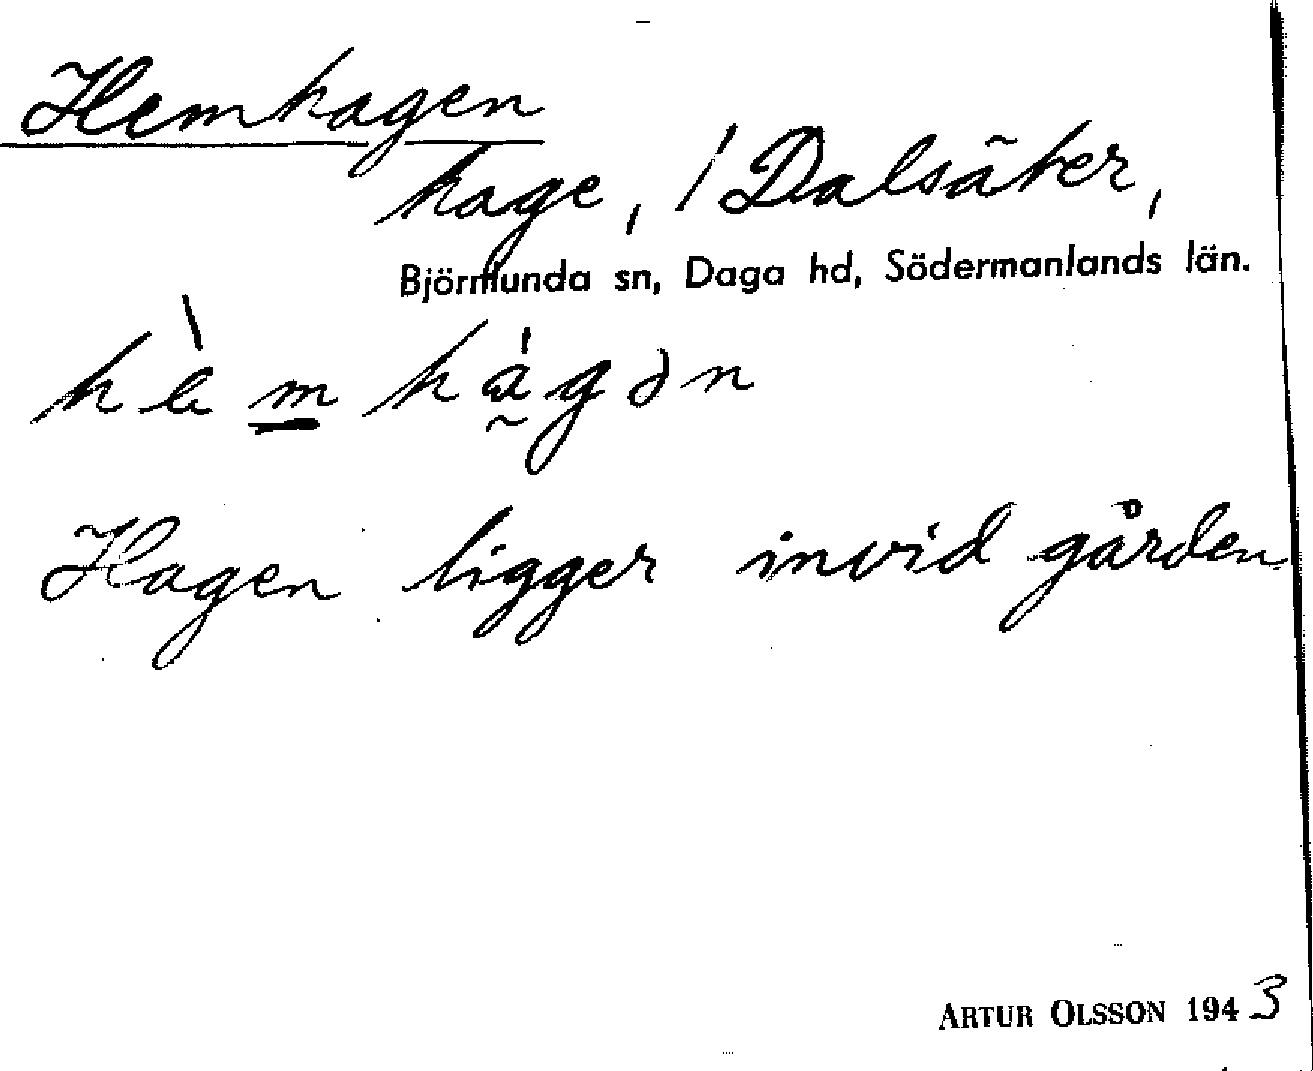 Hemhagen
hage, / Dalsäter,
Björnlunda sn, Daga hd, Södermanlands län.
hèmhágən
Hagen ligger invid gården
ARTUR OLSSON 1943